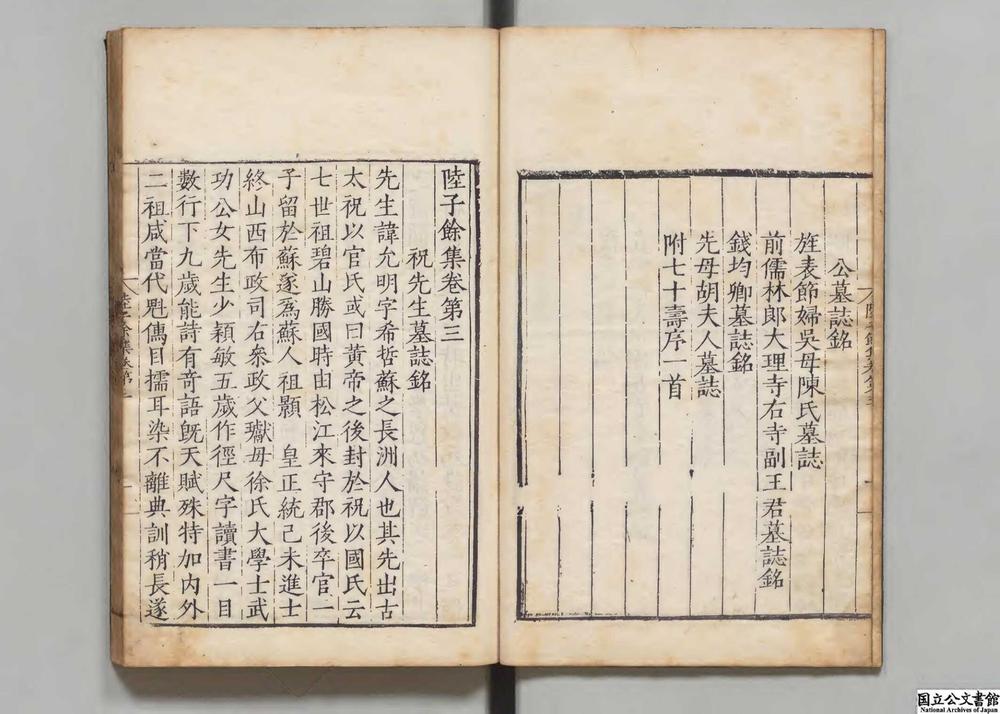 公墓誌銘
旌表節婦吳母陳氏墓誌
前儒林郎大理寺右寺副王君墓誌銘
錢均卿墓誌銘
先母胡夫人墓誌
附七十壽序一首
陸子餘集卷第三
祝先生墓誌銘
先生諱允明字希哲蘇之長洲人也其先出古
太祝以官氏或曰黃帝之後封於祝以國氏云
七世祖碧山勝國時由松江來守郡後卒官二
子留於蘇遂爲蘇人祖顥 皇正統己未進士
終山西布政司右叅政父瓛母徐氏大學士武
功公女先生少穎敏五歲作徑尺字讀書一目
數行下九歲能詩有竒語旣天賦殊特加内外
二祖咸當代魁儁目擩耳染不離典訓稍長遂
国立公文書館
National Archives of Japan